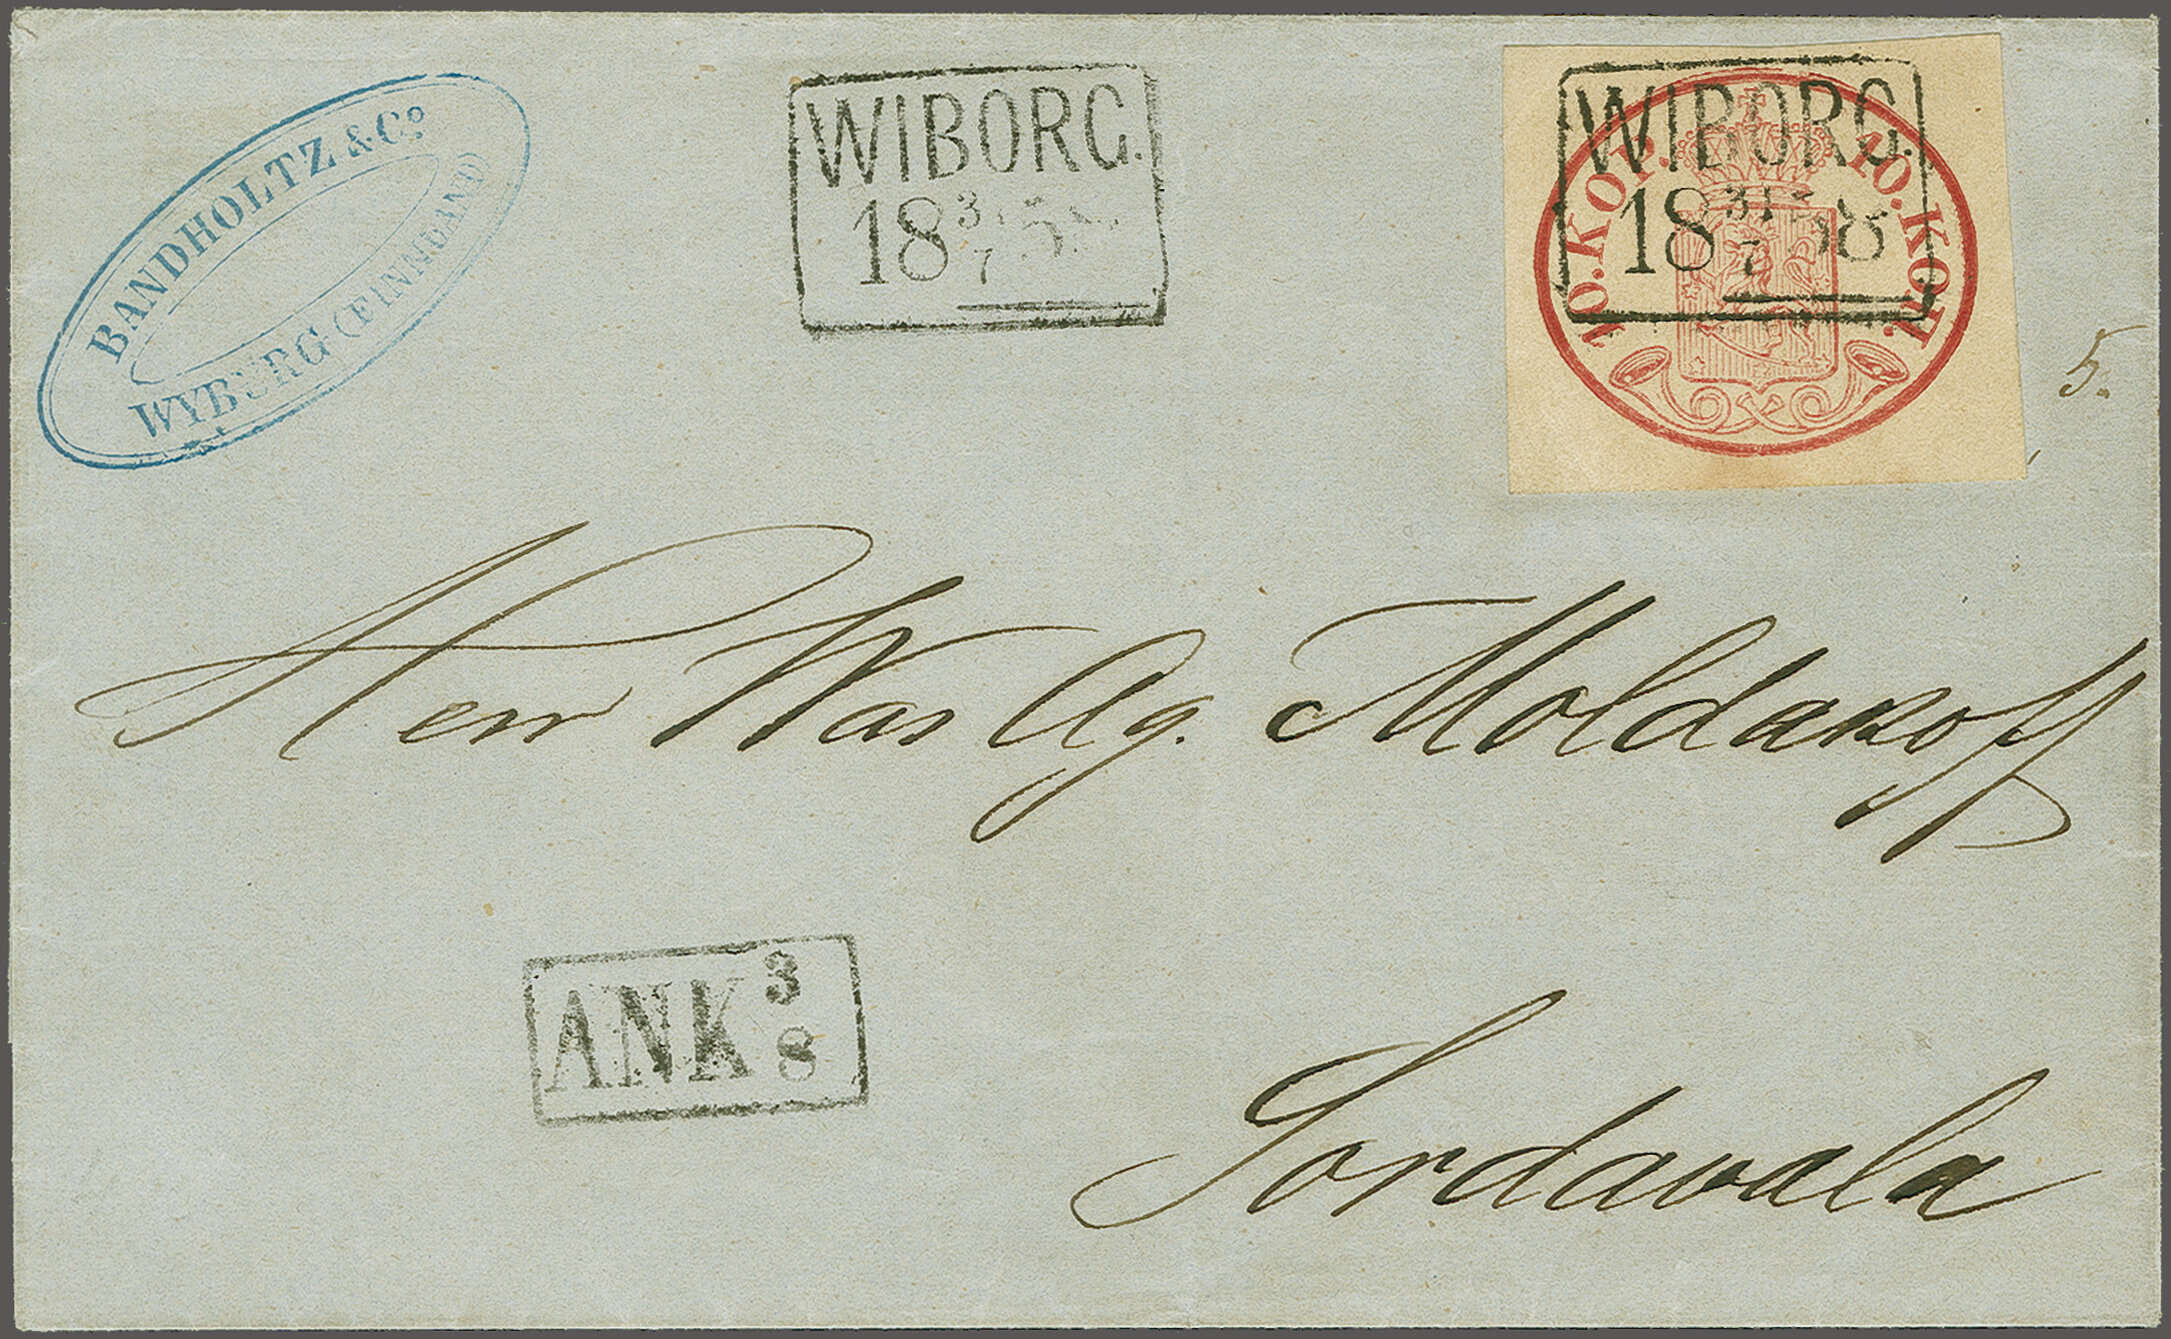 BANDHOLTZ & Cº
WYBURG (FINNLAND)
WIBORG.
18 31/7 58
10. KOP. 10. KOП.
WIBORG.
18 31/7 58
5.
Herr Was Ag. Moldakoff
ANK 3/8
Sordavala